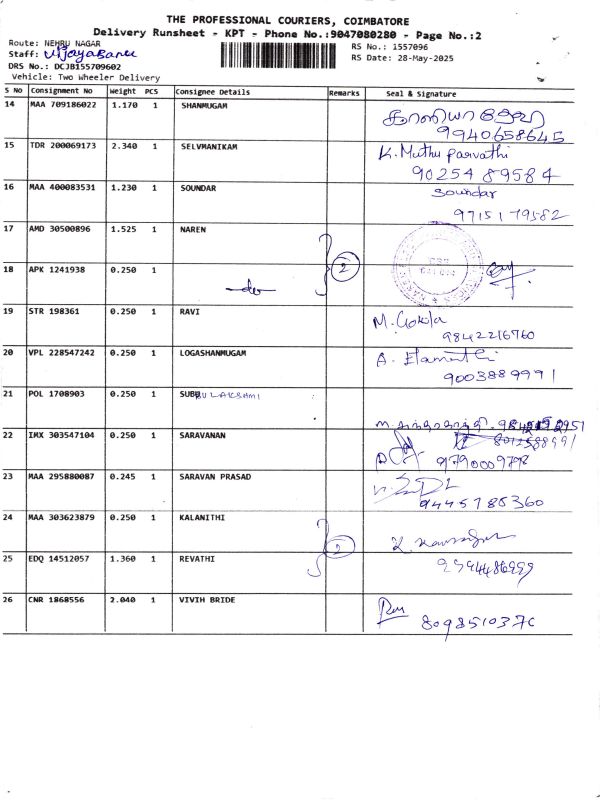 THE PROFESSIONAL COURIERS, COIMBATORE
Delivery Runsheet - KPT - Phone No.:9047080280 - Page No.:2
Route: NEHRU NAGAR
RS No.: 1557096
Staff: Vijayabanu
RS Date: 28-May-2025
DRS No.: DCJB155709602
Vehicle: Two Wheeler Delivery
S No Consignment No Weight PCS Consignee Details Remarks Seal & Signature
14 MAA 709186022 1.170 1 SHANMUGAM
9940658645
15 TDR 200069173 2.340 1 SELVMANIKAM K. Muthu parvathi
90254 89584
16 MAA 400083531 1.230 1 SOUNDAR Soundar
97151 79582
17 AMD 30500896 1.525 1 NAREN
2
18 APK 1241938 0.250 1
19 STR 198361 0.250 1 RAVI M. Gokila
9842216760
20 VPL 228547242 0.250 1 LOGASHANMUGAM A. Elamathi
9003889991
21 POL 1708903 0.250 1 SUBBULAKSHMI
22 IMX 303547104 0.250 1 SARAVANAN
9790009792
23 MAA 295880087 0.245 1 SARAVAN PRASAD
9445785360
24 MAA 303623879 0.250 1 KALANITHI
2
25 EDQ 14512057 1.360 1 REVATHI
26 CNR 1868556 2.040 1 VIVIH BRIDE